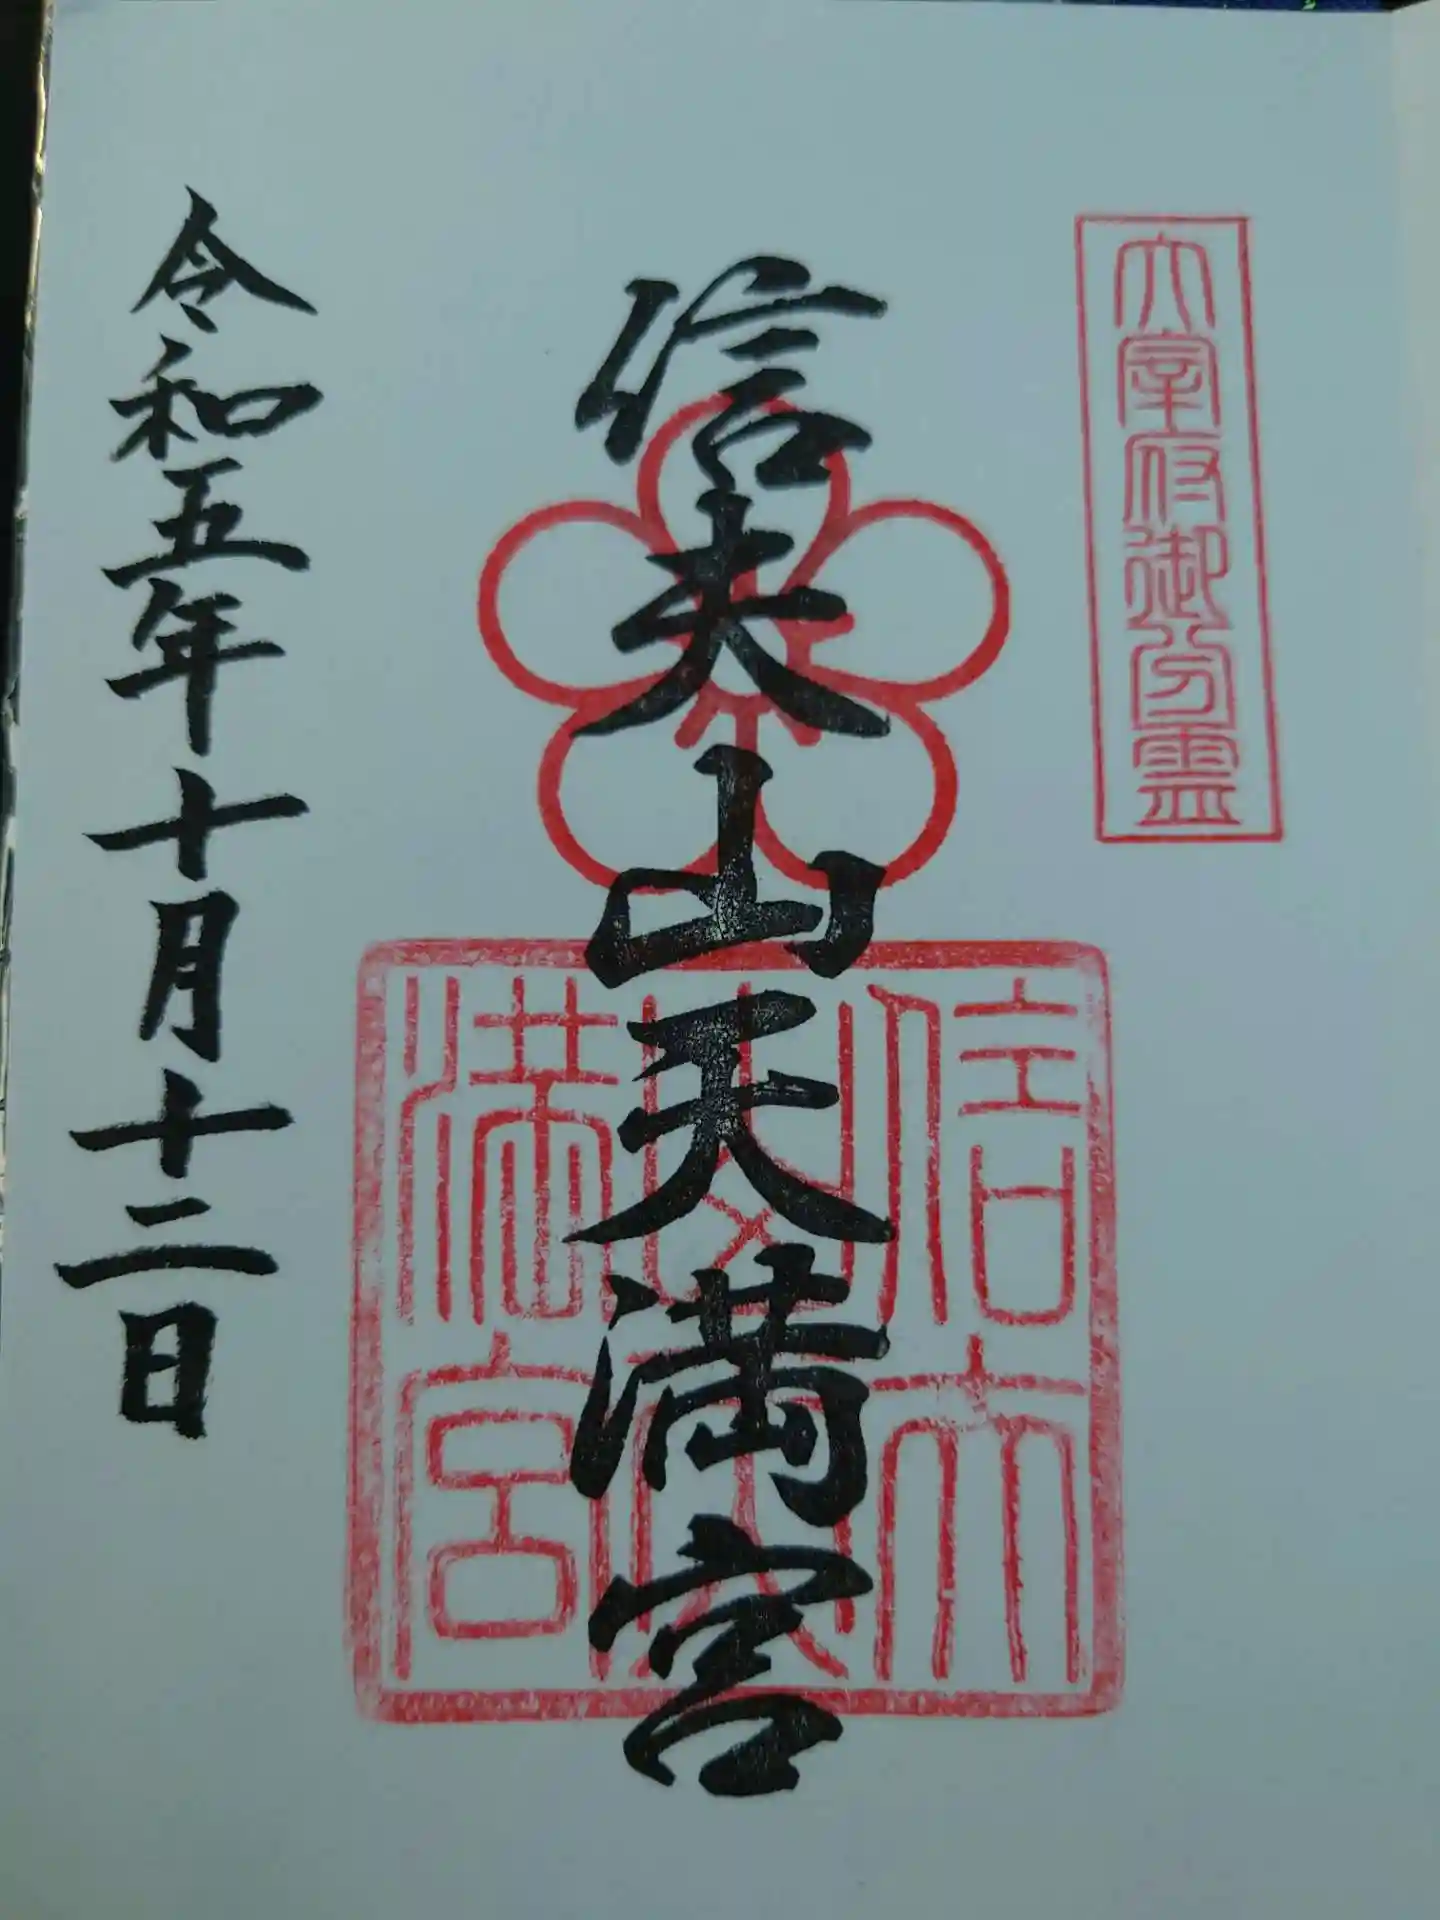 大宰府御分霊
信夫山天満宮
信夫
山天
満宮
令和五年十月十二日